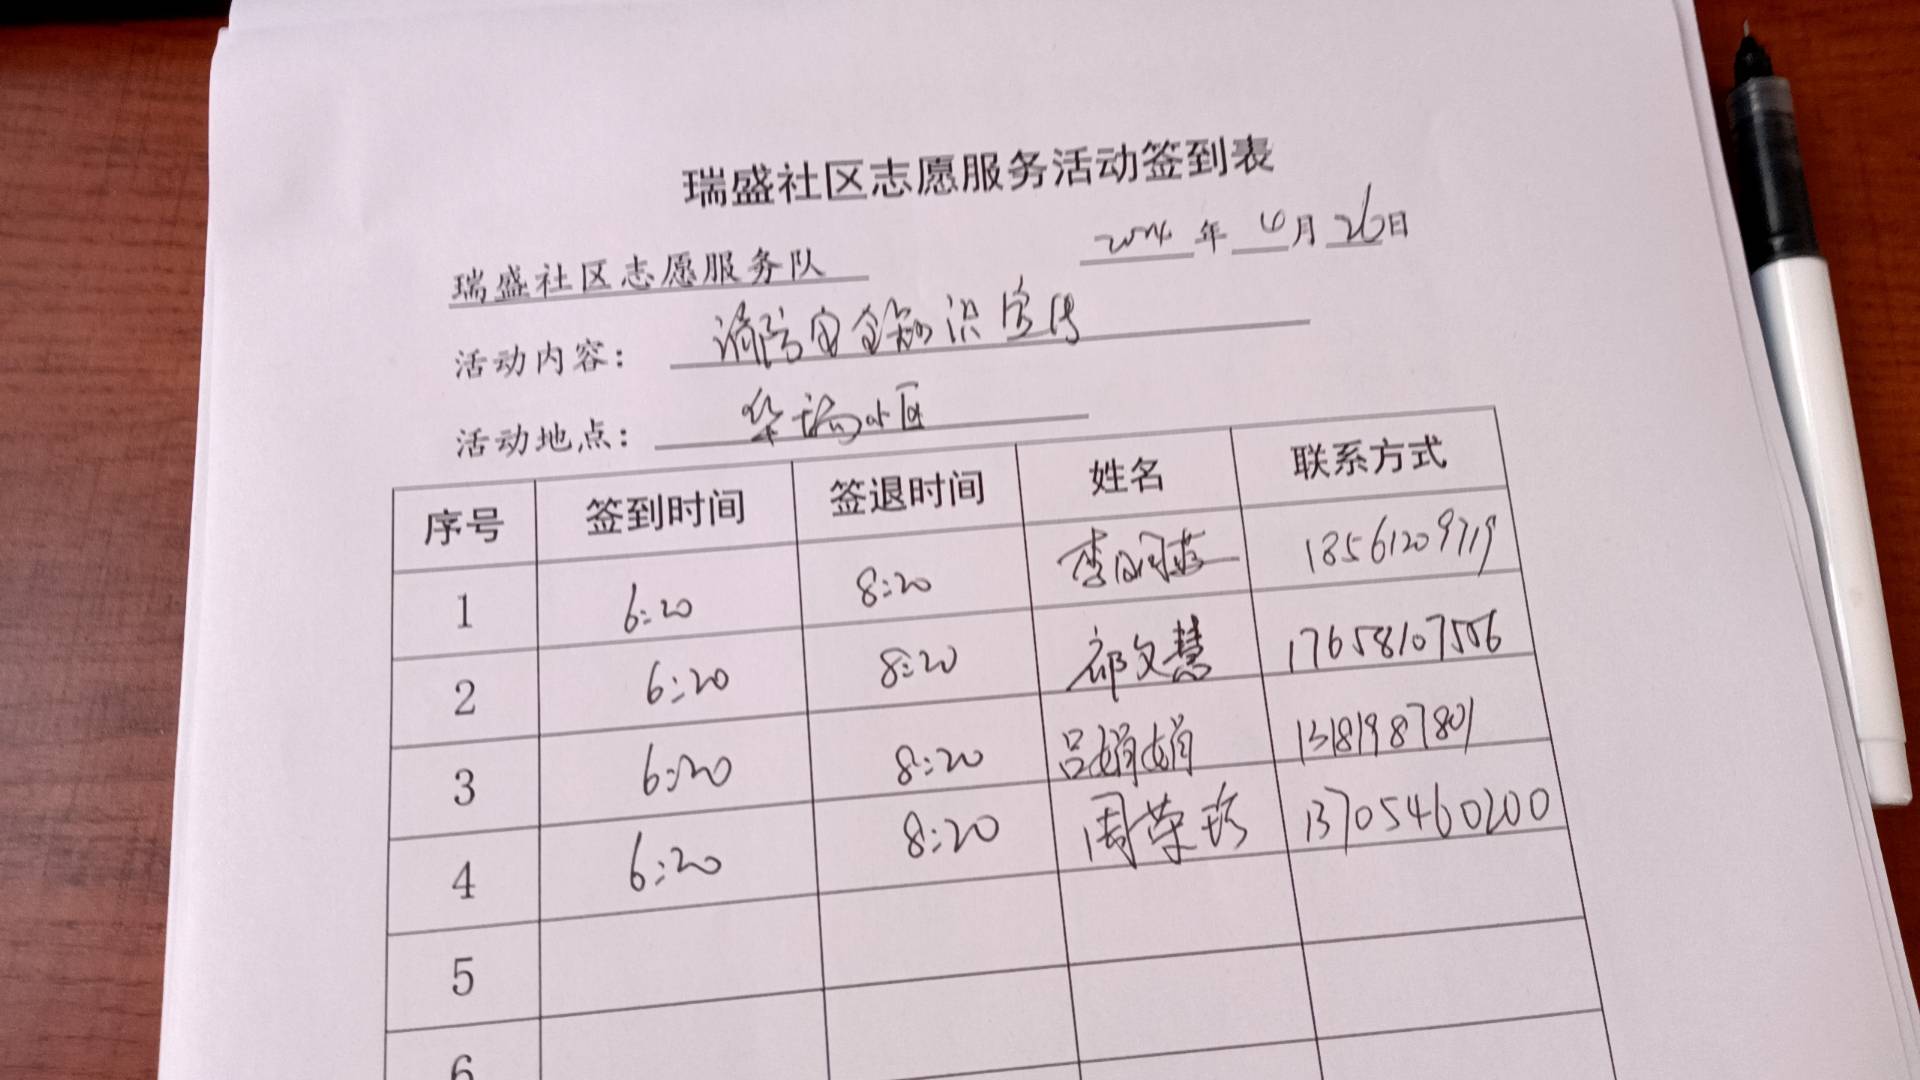 瑞盛社区志愿服务活动签到表
2024年6月26日
瑞盛社区志愿服务队
活动内容：消防安全知识宣传
活动地点：华瑞小区
序号 签到时间 签退时间 姓名 联系方式
1 6:20 8:20 李 18561209719
2 6:20 8:20 祁文慧 17658107556
3 6:20 8:20 吕娟娟 13181987801
4 6:20 8:20 周荣珍 13705460200
5
6